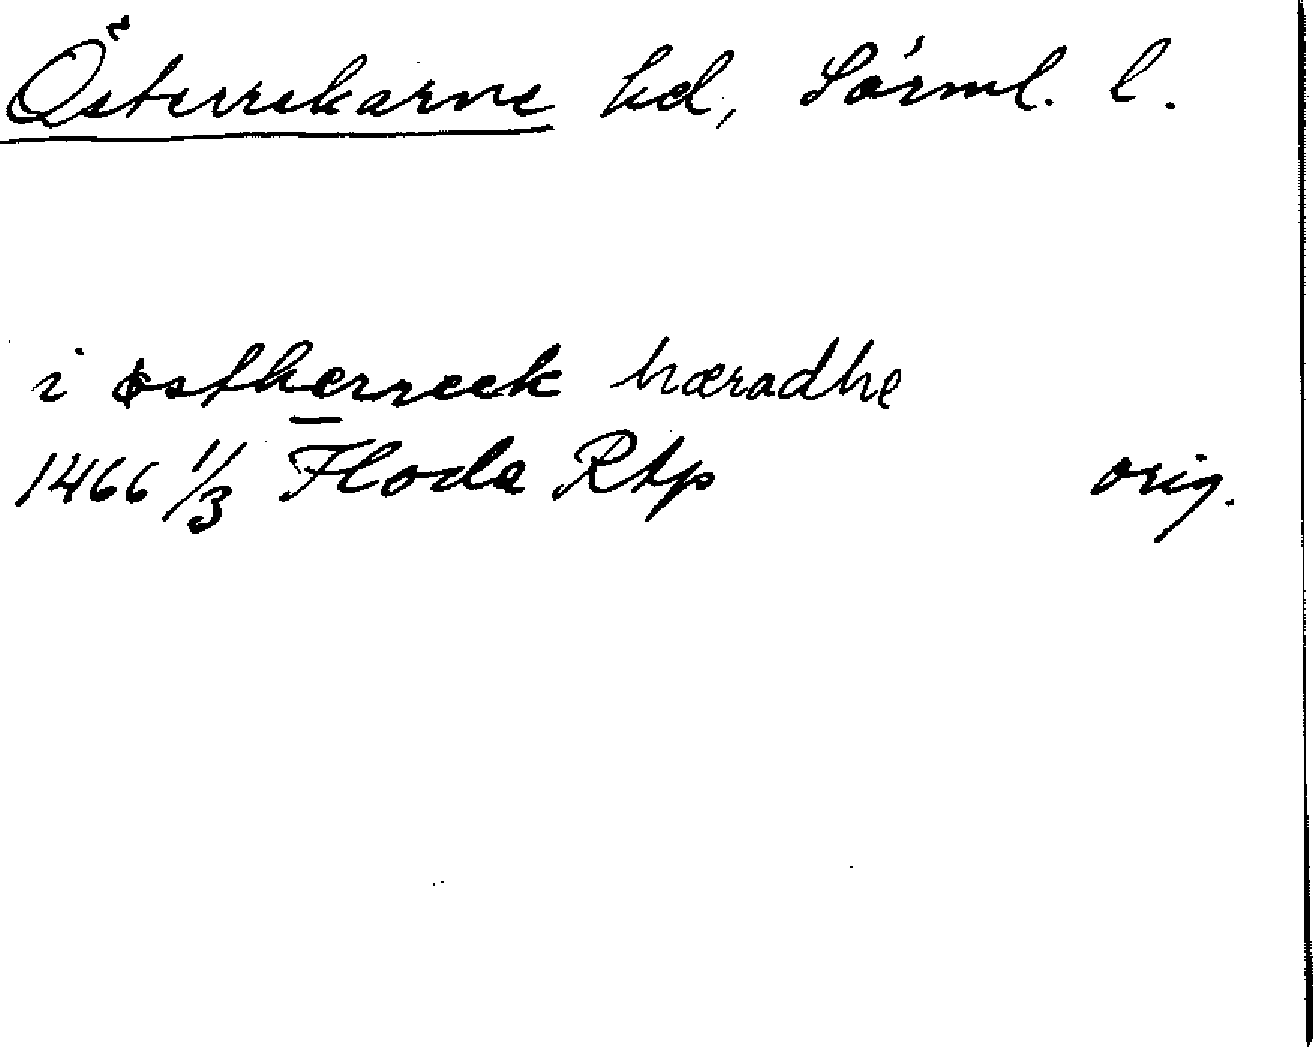 Österrekarne hd, Sörml. l.
i østherreek hæradhe
1466 1/3 Floda Rtp orig.